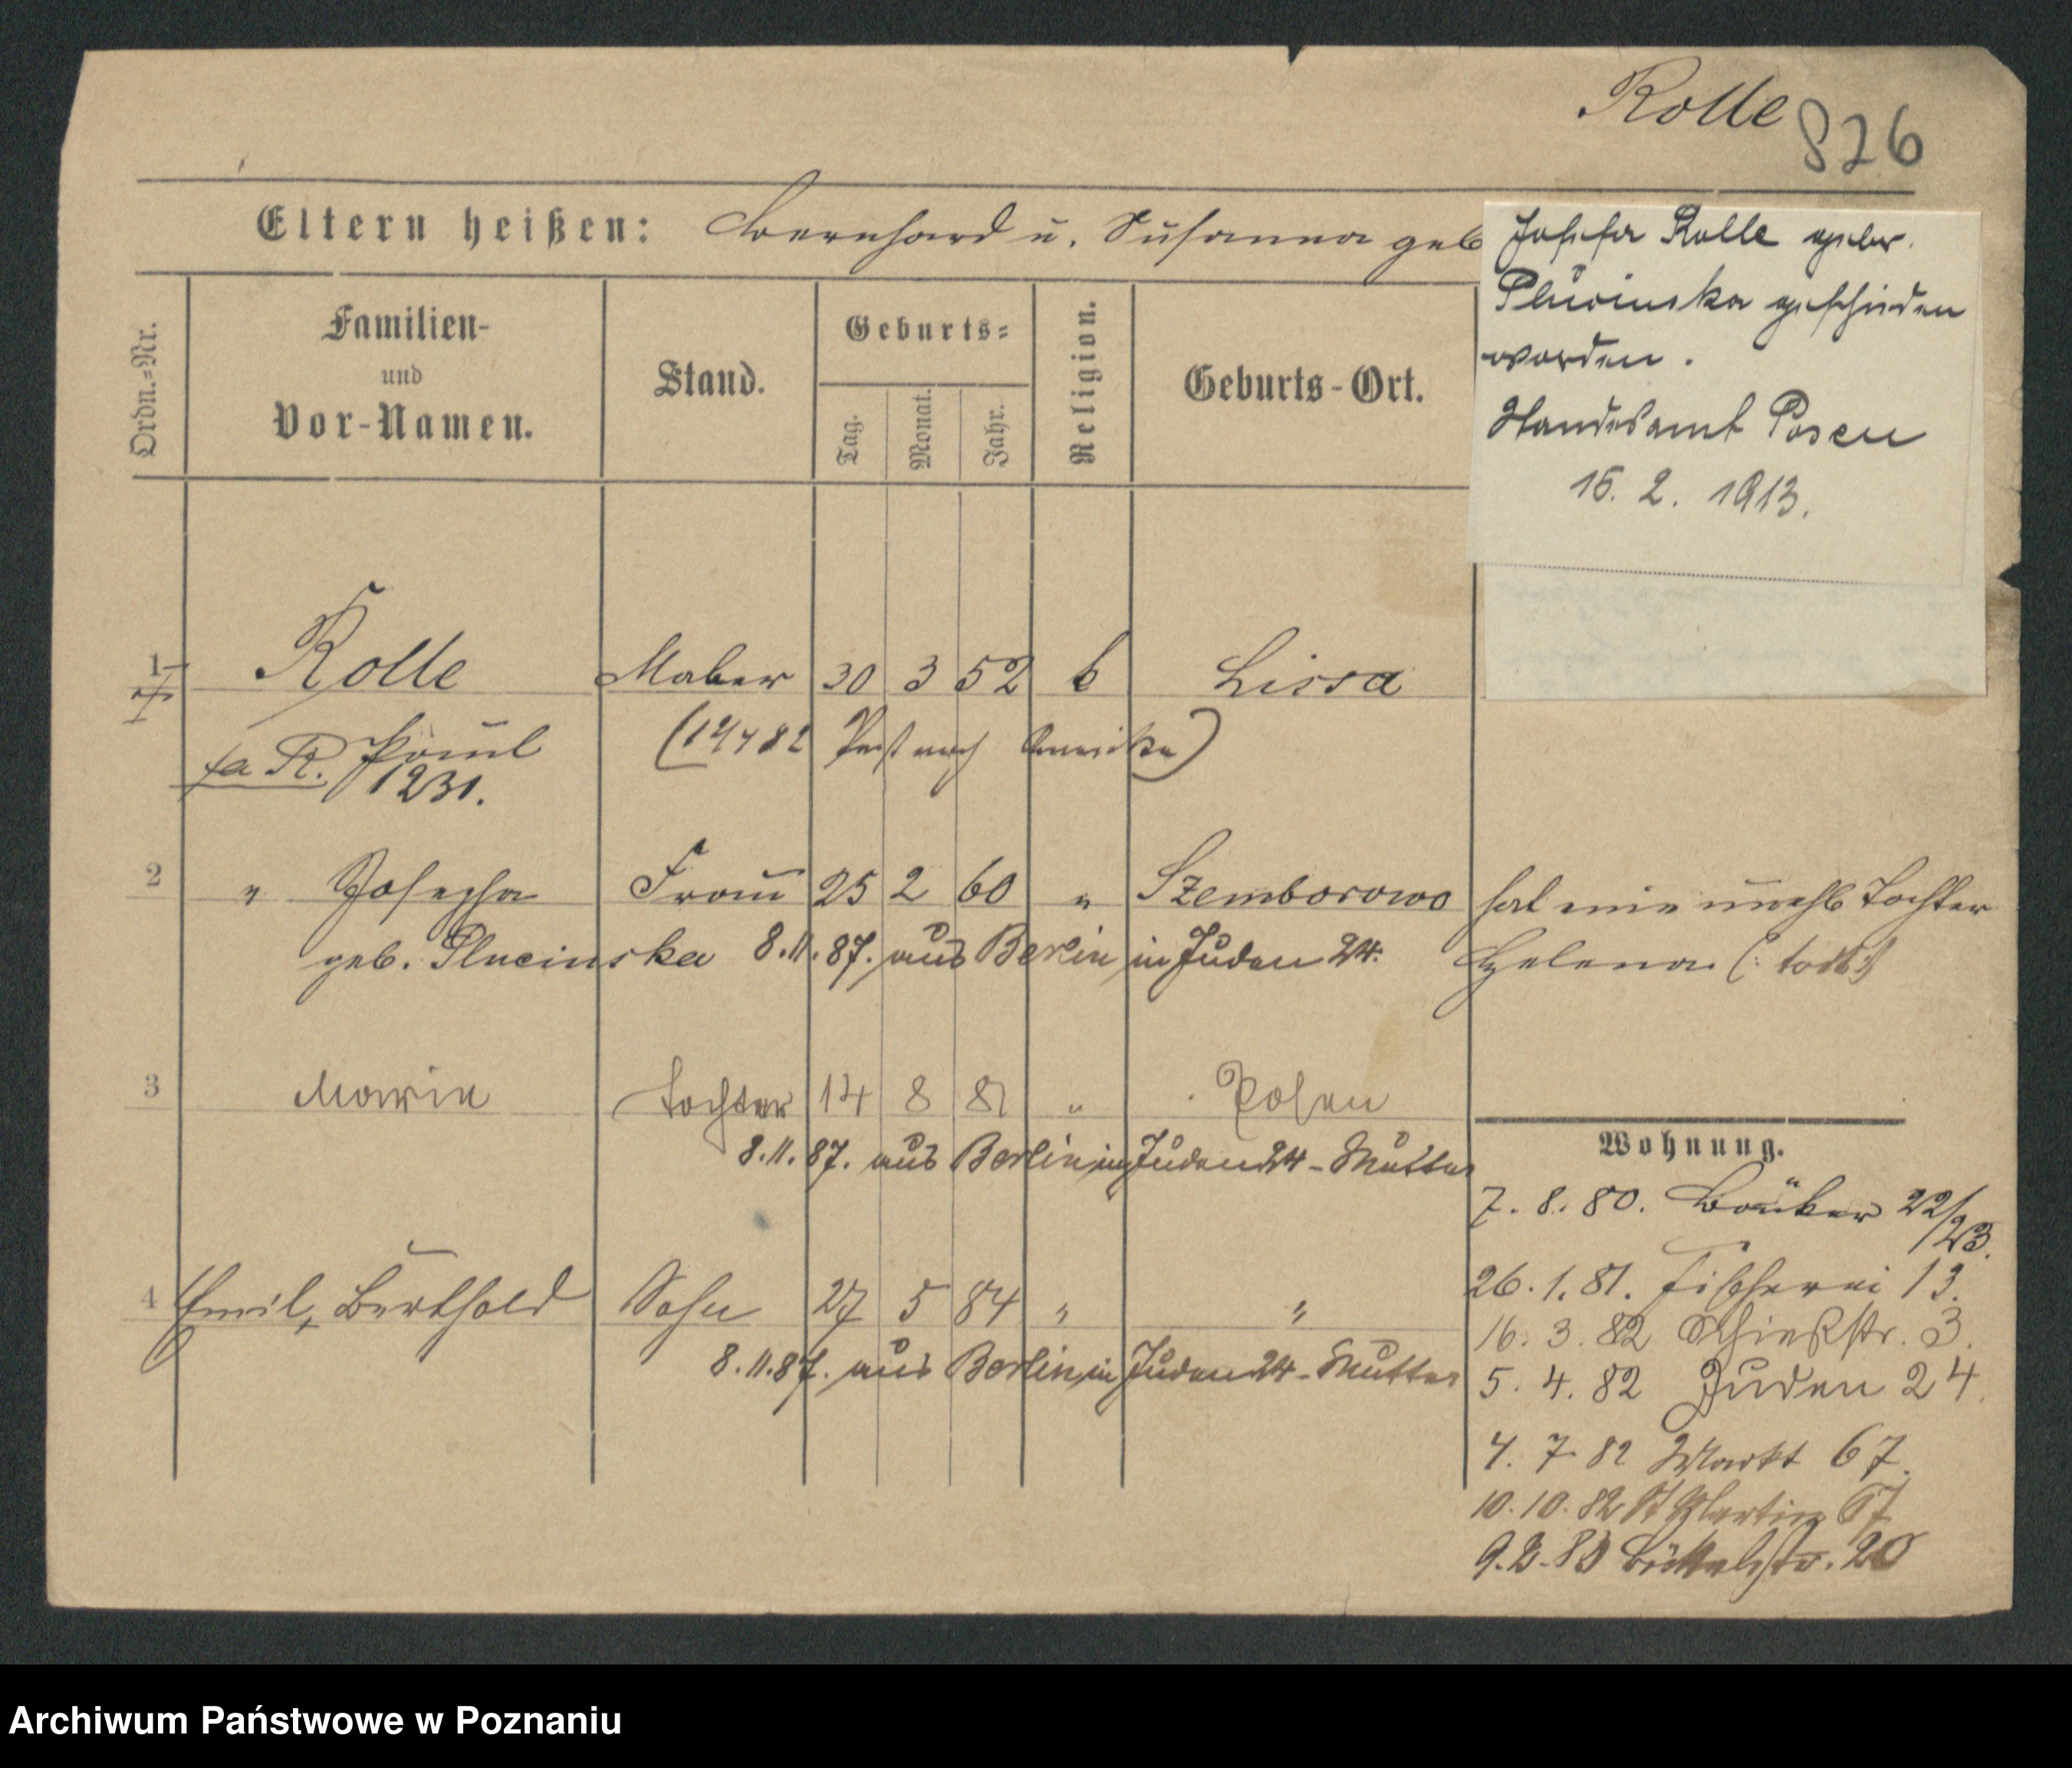 Rolle
826
Eltern heißen: Bernhard u. Susanna geb
Josefa Rolle gebr.
Plucinska geschieden
worden.
Standesamt Posen
15. 2. 1913.
Ordn.-Nr.
Familien-
und
Vor-Namen.
Stand.
Geburts-
Tag.
Monat.
Jahr.
Religion.
Geburts-Ort.
1 Rolle Maler 30 3 52 k Lissa
R. Paul
1231.
(14 7 82 nach Amerika)
2 " Josepha Frau 25 2 60 " Szemborowo hat eine unehl Tochter
geb. Plucinska 8.11.87. aus Berlin in Juden 24. Helena (: todt :)
3 Marie Tochter 14 8 81 " Posen
8.11.87. aus Berlin in Juden 24 - Mutter
4 Emil, Berthold Sohn 27 5 84 " "
8.11.87. aus Berlin in Juden 24 - Mutter
Wohnung.
7. 8. 80. Bäcker 22/23.
26. 1. 81. Fischerei 13.
16. 3. 82 Schießstr. 3.
5. 4. 82 Juden 24.
4. 7. 82 Markt 67.
10. 10. 82 St Martin 67
9. 2. 83 Büttelstr. 20
Archiwum Państwowe w Poznaniu